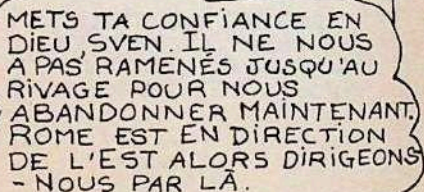 METS TA CONFIANCE EN
DIEU, SVEN. IL NE NOUS
A PAS RAMENÉS JUSQU'AU
RIVAGE POUR NOUS
ABANDONNER MAINTENANT.
ROME EST EN DIRECTION
DE L'EST ALORS DIRIGEONS
- NOUS PAR LÀ.